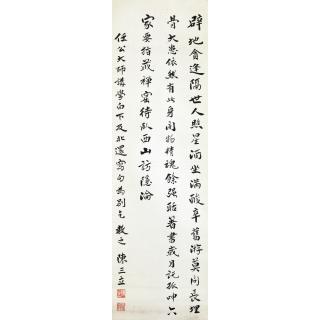 辟地會逢隔世人照星酒坐滿酸辛舊游莫問長埋
骨大患依然有此身開物精魂餘強聒著書歲月託孤呻六
家要指藏禪窟待臥西山訪隱淪
任公大師講學白下及北還寫句為別乞教之 陳三立